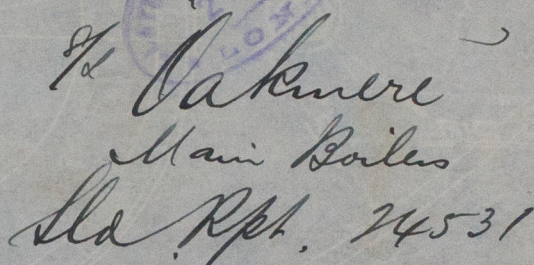 S/S "Oakmere"
Main Boilers
Sld. Rpt. 24531